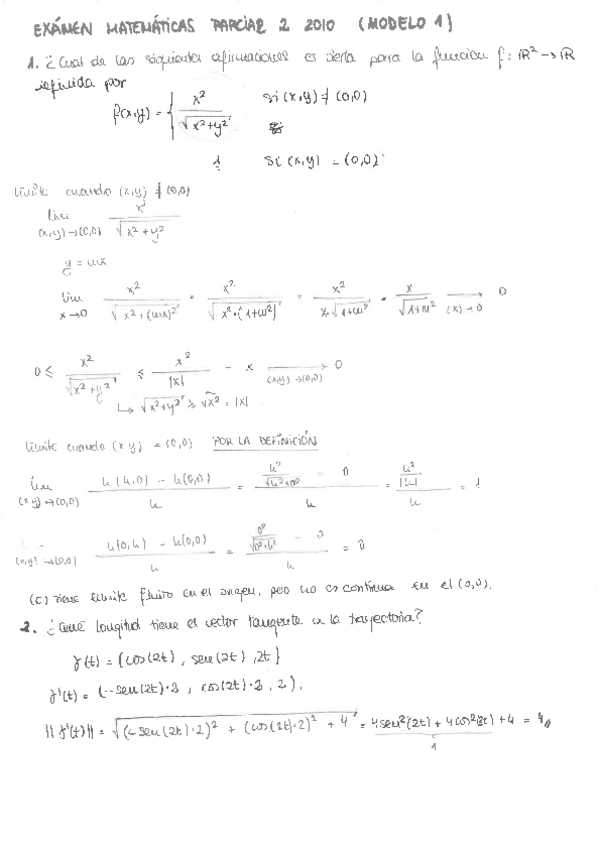 EXÁMEN MATEMÁTICAS PARCIAL 2 2010 (MODELO 1)
1. ¿Cual de las siguientes afirmaciones es cierta para la funcion f: ℝ² → ℝ
definida por
f(x,y) = { x² / √(x²+y²) si (x,y) ≠ (0,0)
1 si (x,y) = (0,0)
límite cuando (x,y) ≠ (0,0)
lim (x,y)→(0,0) x² / √(x²+y²)
y = mx
lim x→0 x² / √(x²+(mx)²) = x² / √(x²·(1+m²)) = x² / x·√(1+m²) = x / √(1+m²) (x)→0 0
0 ≤ x² / √(x²+y²) ≤ x² / |x| = x (x,y)→(0,0) 0
↳ √(x²+y²) ≥ √x² = |x|
límite cuando (x y) = (0,0) POR LA DEFINICIÓN
lim (x,y)→(0,0) h(h,0) - h(0,0) / h = h² / √(h²+0²) - 0 / h = h² / |h| / h = 1
(x,y)→(0,0) h(0,h) - h(0,0) / h = 0² / √(0²+h²) - 0 / h = 0
(c) Tiene límite finito en el origen, pero no es continua en el (0,0).
2. ¿Qué longitud tiene el vector tangente a la trayectoria?
γ(t) = (cos(2t), sen(2t), 2t)
γ'(t) = (-sen(2t)·2, cos(2t)·2, 2).
||γ'(t)|| = √((-sen(2t)·2)² + (cos(2t)·2)² + 4) = 4sen²(2t) + 4cos²(2t) + 4 = 4
1